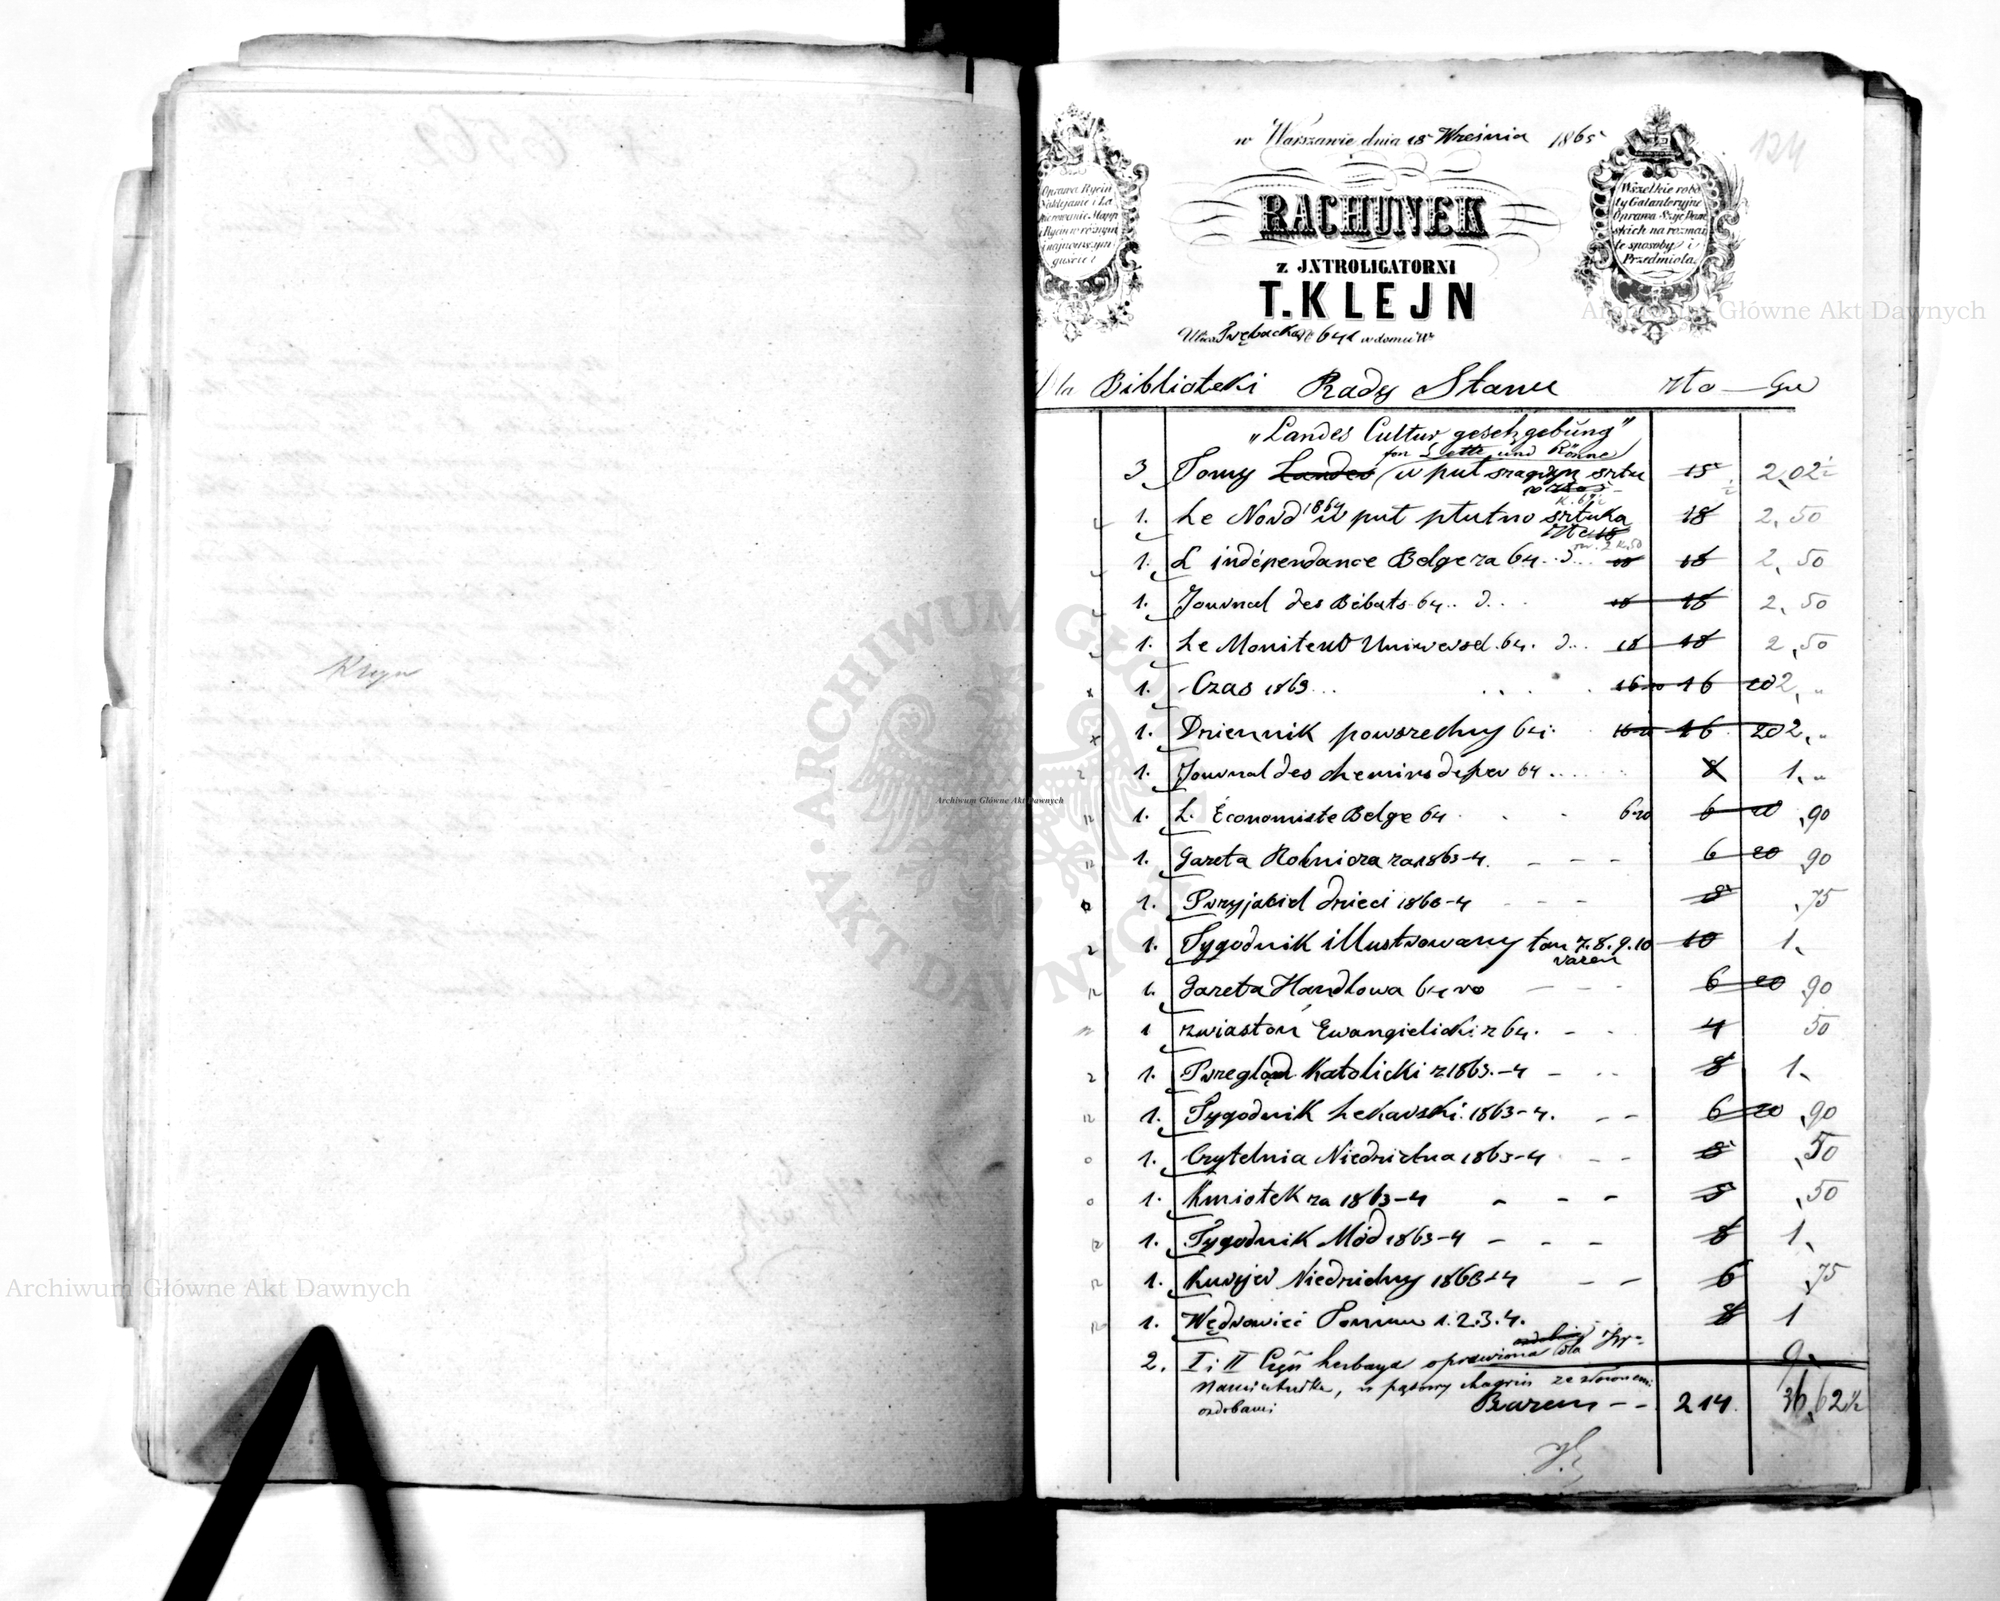 Kleyn
124
w Warszawie dnia 18 Września 1865
Oprawa Rycin
Naklejanie i La
kierowanie Mapp
i Rycin w różnym
i najnowszym
guście
Wszelkie robo
ty Galanteryjne
Oprawa
skich na rozmai
te sposoby i
Przedmiota.
RACHUNEK
z JNTROLIGATORNI
T. KLEJN
Ulica Trębacka № 641 w domu W
Dla Biblioteki Rady Stanu złο — Gr
„Landes Cultur gesetzgebüng"
fon Lette und Rönne
3 Tomy Landes w puł szagryn sztu 15 2,02½
1. Le Nord 1864 w puł płutno sztuka 18 2,50
1. L indépendance Belge za 64 .. d... 18 18 2,50
1. Journal des Débats 64 .. d... 18 18 2,50
1. Le Moniteur Uniwersel 64. d... 18 18 2,50
1. Czas 1863... 16 20 16 20 2, "
1. Dziennik powszechny 64. 16 20 16 20 2, "
1. Journal des chemins de fer 64 ..... 8 1, "
1. L. Économiste Belge 64 . . . 6 20 6 20 ,90
1. Gazeta Rolnicza za 1863-4. - - - 6 20 ,90
1. Przyjaciel dzieci 1863-4 - - - 8 ,75
1. Tygodnik illustrowany tom 7. 8. 9. 10 10 1,
razem
1. Gazeta Handlowa 64 ro - - - 6 20 ,90
1 zwiastón Ewangielicki z 64. - - - 4 50
1. Przegląd Katolicki z 1863.-4 - .. 8 1,
1. Tygodnik Lekarski. 1863-4. - - 6 20 ,90
1. Czytelnia Niedzielna 1863-4 - - 8 ,50
1. Kmiotek za 1863-4 - - - 8 ,50
1. Tygodnik Mód 1863-4 - - - 8 1,
1. Kuryjer Niedzielny 1863-4 - - 6 ,75
1. Wędrowiec Tomów 1. 2. 3. 4. 8 1
2. I i II Część herbarza oprawiona dla 9,
Namiestnika, w pąsowy chagrin ze złoconemi
ozdobami Razem - - 214. 36,62½
Archiwum Główne Akt Dawnych
Archiwum Główne Akt Dawnych
Archiwum Główne Akt Dawnych
ARCHIWUM GŁÓWNE AKT DAWNYCH